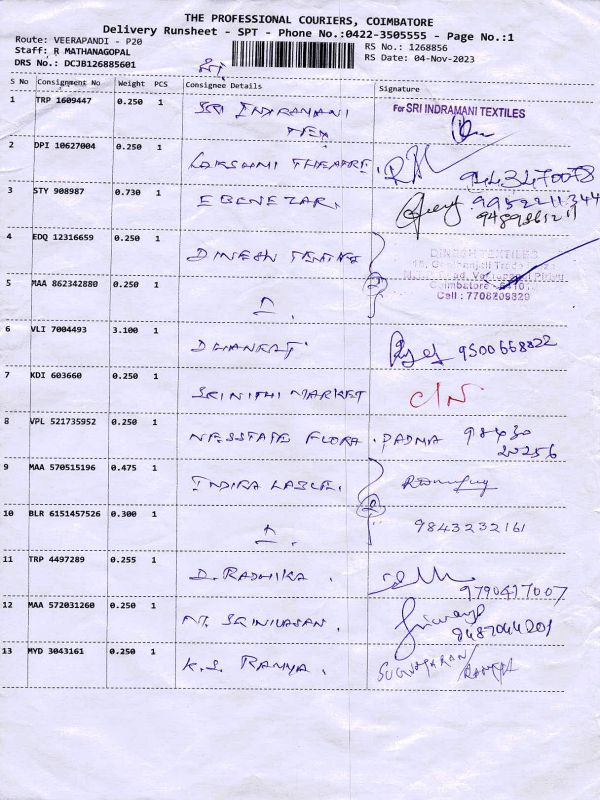 THE PROFESSIONAL COURIERS, COIMBATORE
Delivery Runsheet - SPT - Phone No.:0422-3505555 - Page No.:1
Route: VEERAPANDI - P20
Staff: R MATHANAGOPAL
DRS No.: DCJB126885601
RS No.: 1268856
RS Date: 04-Nov-2023
S No Consignment No Weight PCS Consignee Details Signature
1 TRP 1609447 0.250 1 SRI INDRAMANI TEX For SRI INDRAMANI TEXTILES
2 DPI 10627004 0.250 1 LAKSHMI THEATRE. 9443470078
3 STY 908987 0.730 1 EBENEZAR. 9952211344
4 EDQ 12316659 0.250 1 DINESH DINESH TEXTILES
Coimbatore
Cell : 7708209329
5 MAA 862342880 0.250 1
6 VLI 7004493 3.100 1 9500668822
7 KDI 603660 0.250 1 SRINITHI MARKET C/N
8 VPL 521735952 0.250 1 FLORA. PADMA 98430
20256
9 MAA 570515196 0.475 1 INDIRA
10 BLR 6151457526 0.300 1 9843232161
11 TRP 4497289 0.255 1 D. RADHIKA. 9790417007
12 MAA 572031260 0.250 1 SRINIVASAN. 9487044201
13 MYD 3043161 0.250 1 K.S. RAMYA.